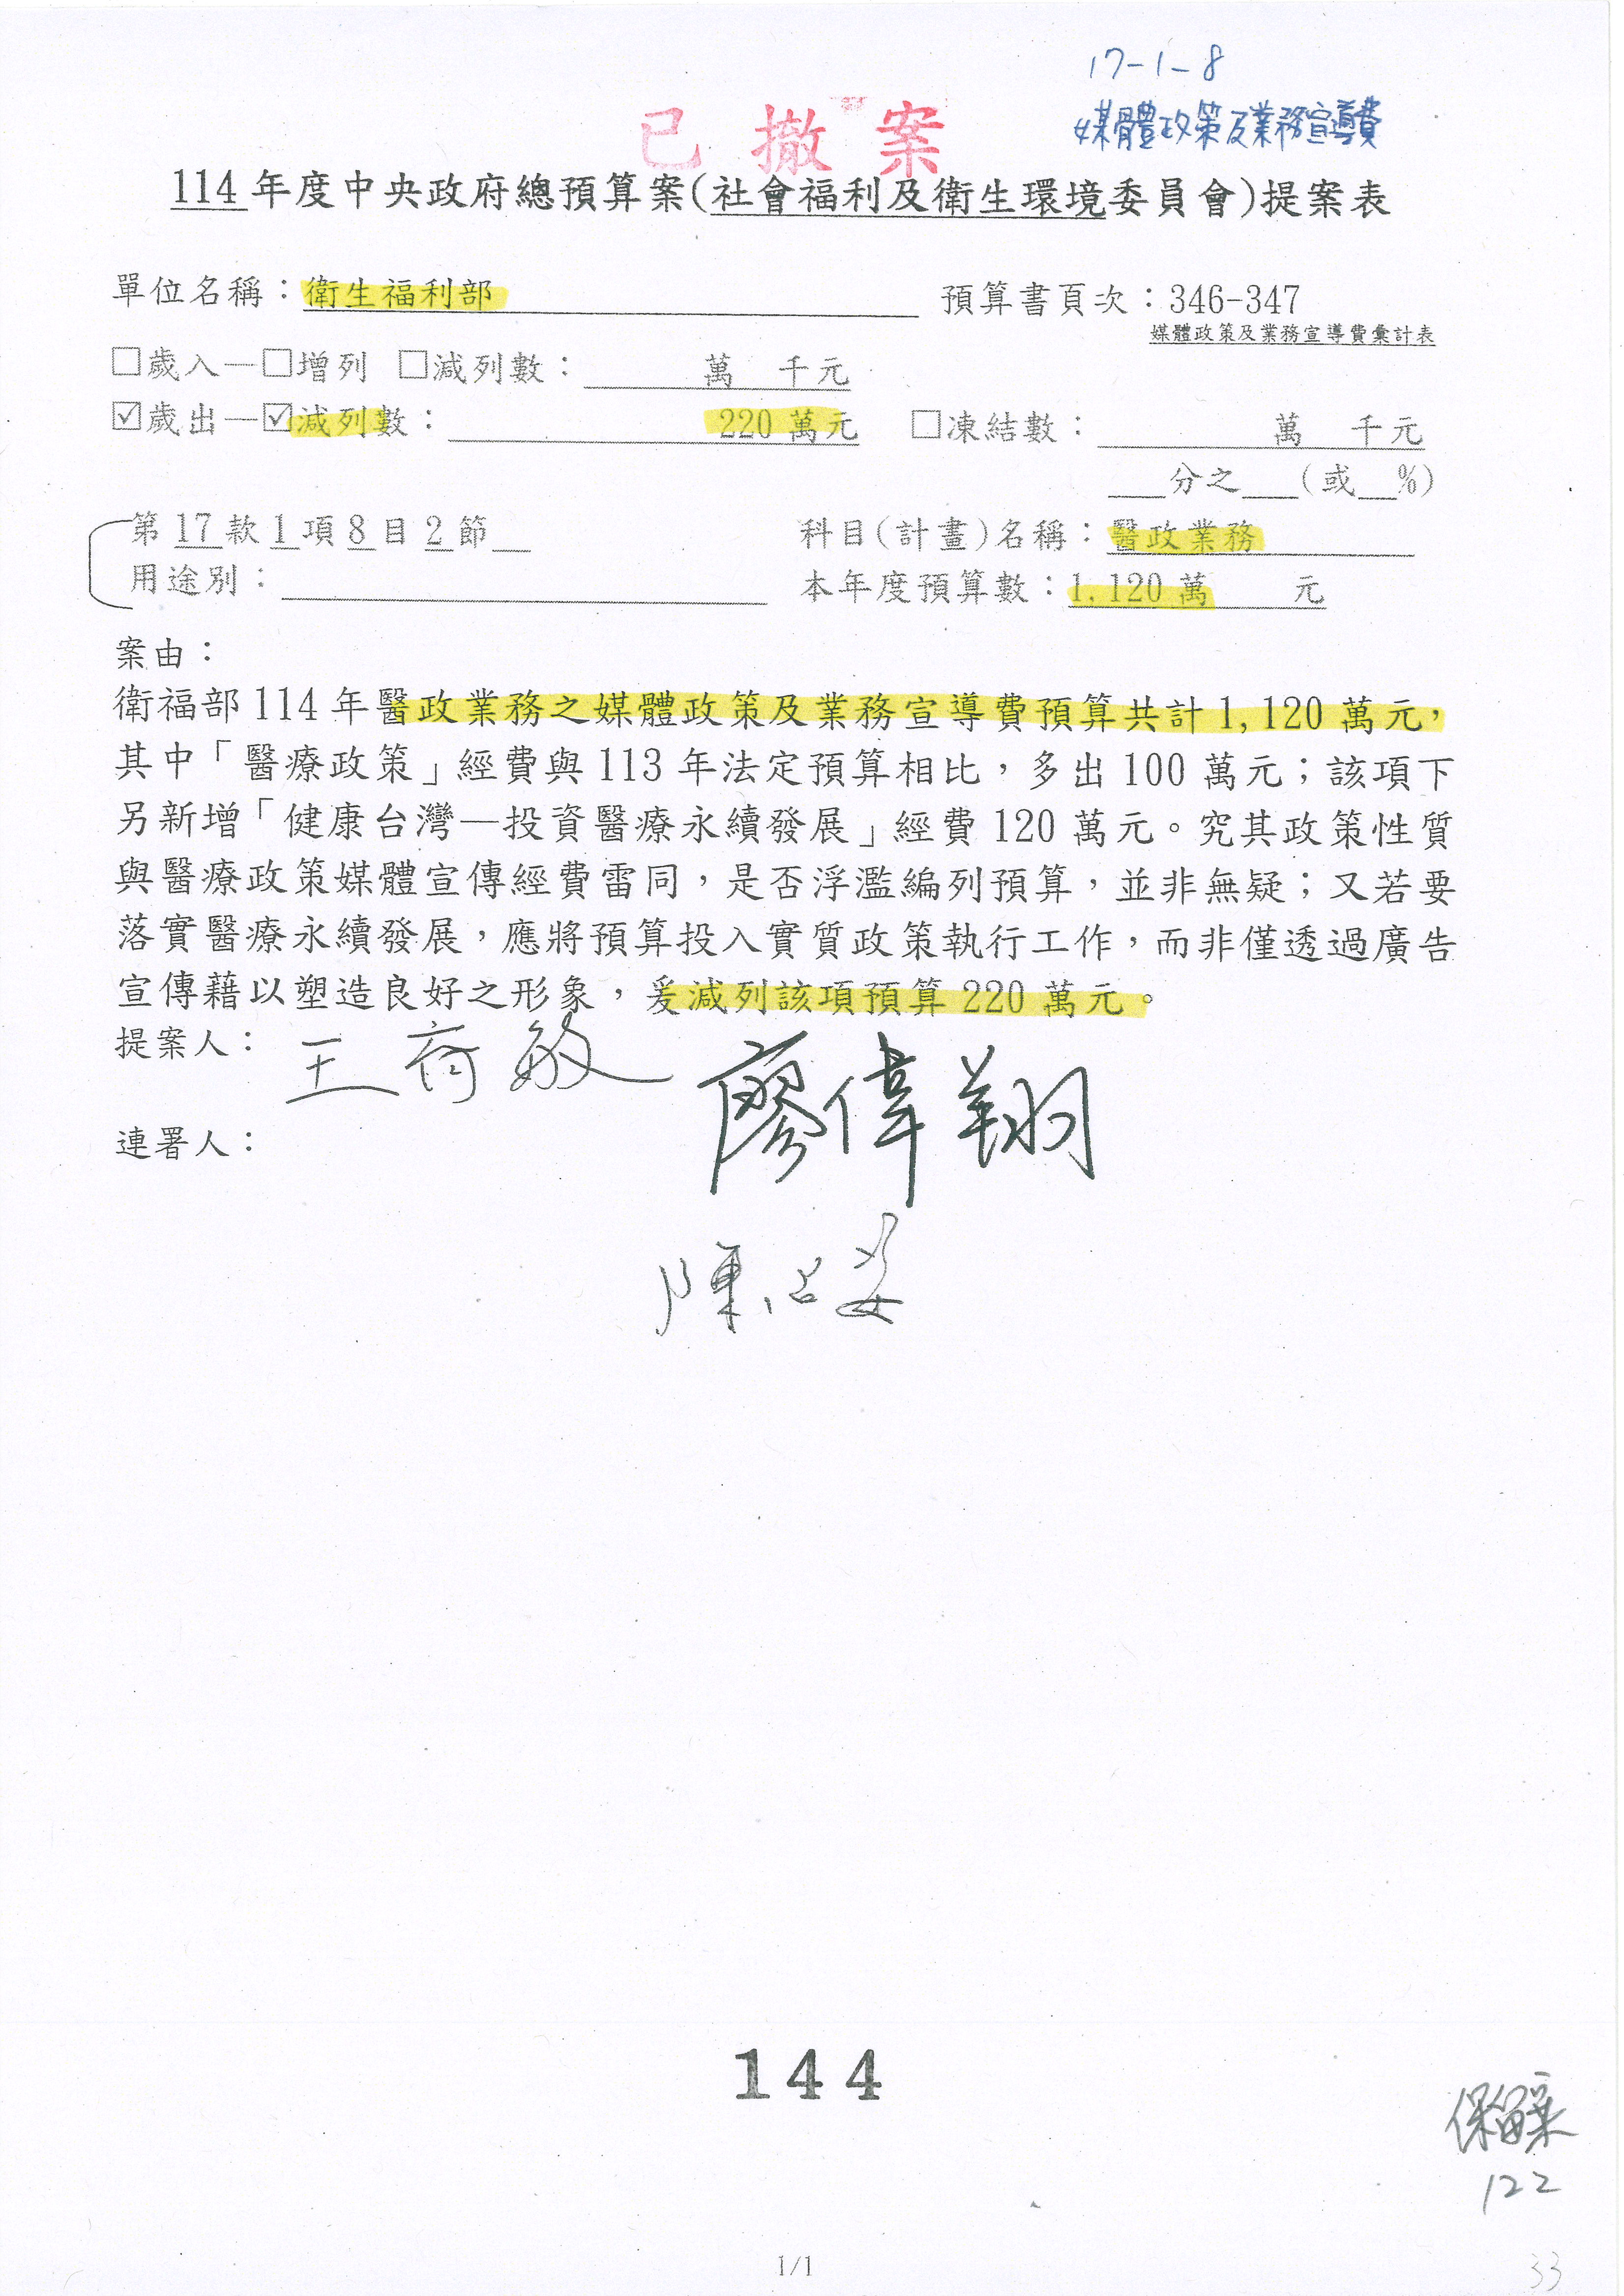 17-1-8
媒體政策及業務宣導費
已撤案
114年度中央政府總預算案(社會福利及衛生環境委員會)提案表
單位名稱：衛生福利部 預算書頁次：346-347
媒體政策及業務宣導費彙計表
☐歲入—☐增列 ☐減列數： 萬 千元
☑歲出—☑減列數： 220萬元 ☐凍結數： 萬 千元
分之 (或 %)
第17款1項8目2節 科目(計畫)名稱：醫政業務
用途別： 本年度預算數：1,120萬 元
案由：
衛福部114年醫政業務之媒體政策及業務宣導費預算共計1,120萬元，
其中「醫療政策」經費與113年法定預算相比，多出100萬元；該項下
另新增「健康台灣—投資醫療永續發展」經費120萬元。究其政策性質
與醫療政策媒體宣傳經費雷同，是否浮濫編列預算，並非無疑；又若要
落實醫療永續發展，應將預算投入實質政策執行工作，而非僅透過廣告
宣傳藉以塑造良好之形象，爰減列該項預算220萬元。
提案人： 王育敏 廖偉翔
連署人：
陳
144
保留案
122
1/1
33